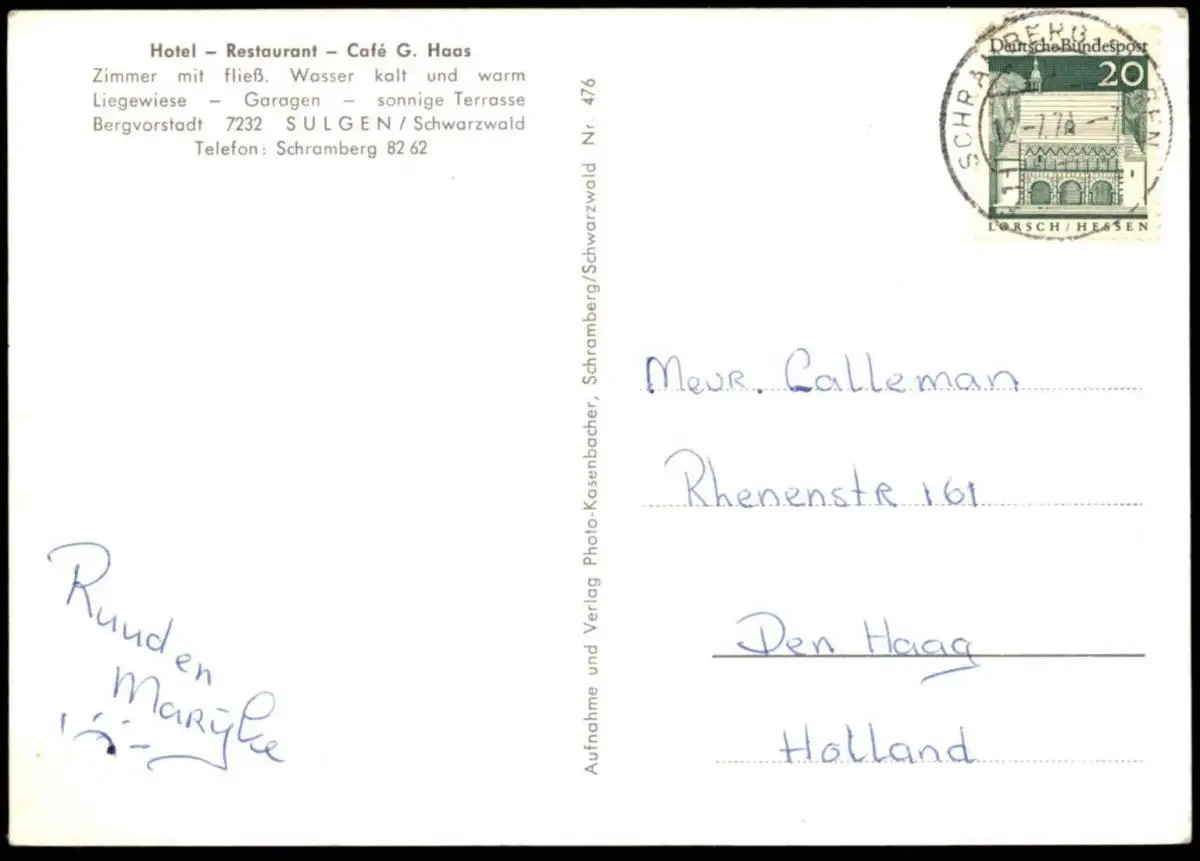 Hotel – Restaurant – Café G. Haas
Zimmer mit fließ. Wasser kalt und warm
Liegewiese – Garagen – sonnige Terrasse
Bergvorstadt 7232 SULGEN / Schwarzwald
Telefon: Schramberg 82 62
Ruud en
Marijke
Aufnahme und Verlag Photo-Kasenbacher, Schramberg/Schwarzwald Nr. 476
SCHRAMBERG
Deutsche Bundespost
20
LORSCH / HESSEN
Meur. Calleman
Rhenenstr 161
Den Haag
Holland